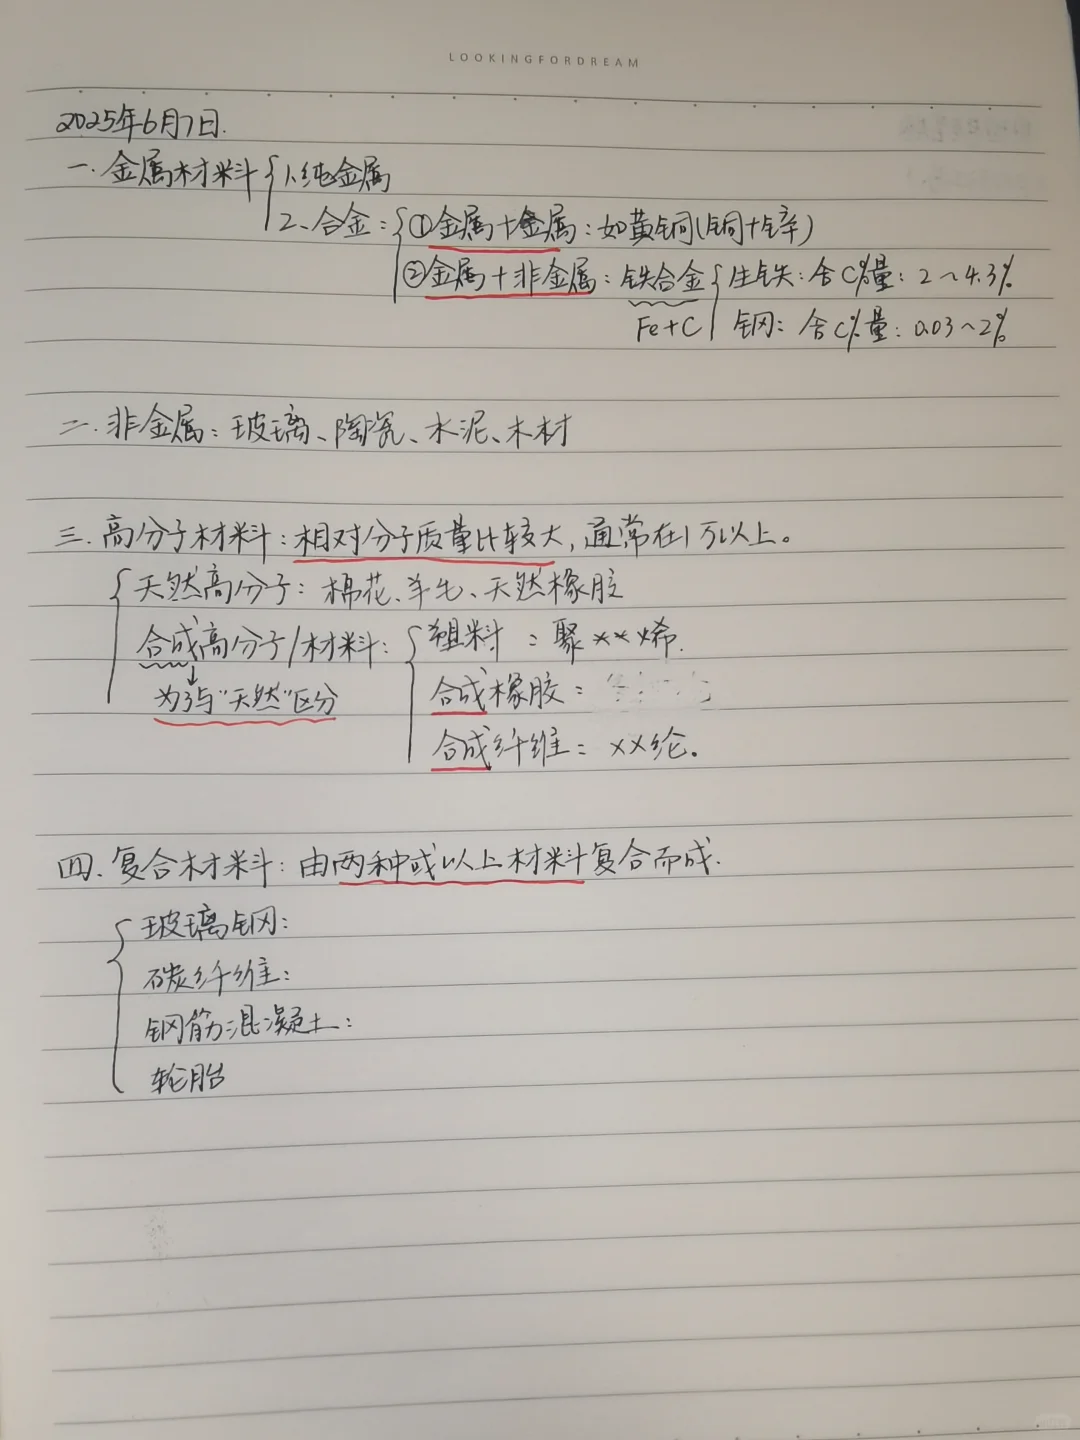 LOOKINGFORDREAM
2025年6月7日.
一.金属材料 1.纯金属
2、合金: ①金属+金属:如黄铜(铜+锌)
②金属+非金属:铁合金 生铁:含C%量:2~4.3%
Fe+C 钢:含C%量:0.03~2%
二.非金属:玻璃、陶瓷、水泥、木材
三.高分子材料:相对分子质量比较大,通常在1万以上。
天然高分子:棉花、羊毛、天然橡胶
合成高分子/材料: 塑料:聚××烯.
为了与"天然"区分 合成橡胶:
合成纤维:××纶。
四.复合材料:由两种或以上材料复合而成.
玻璃钢:
碳纤维:
钢筋混凝土:
轮胎